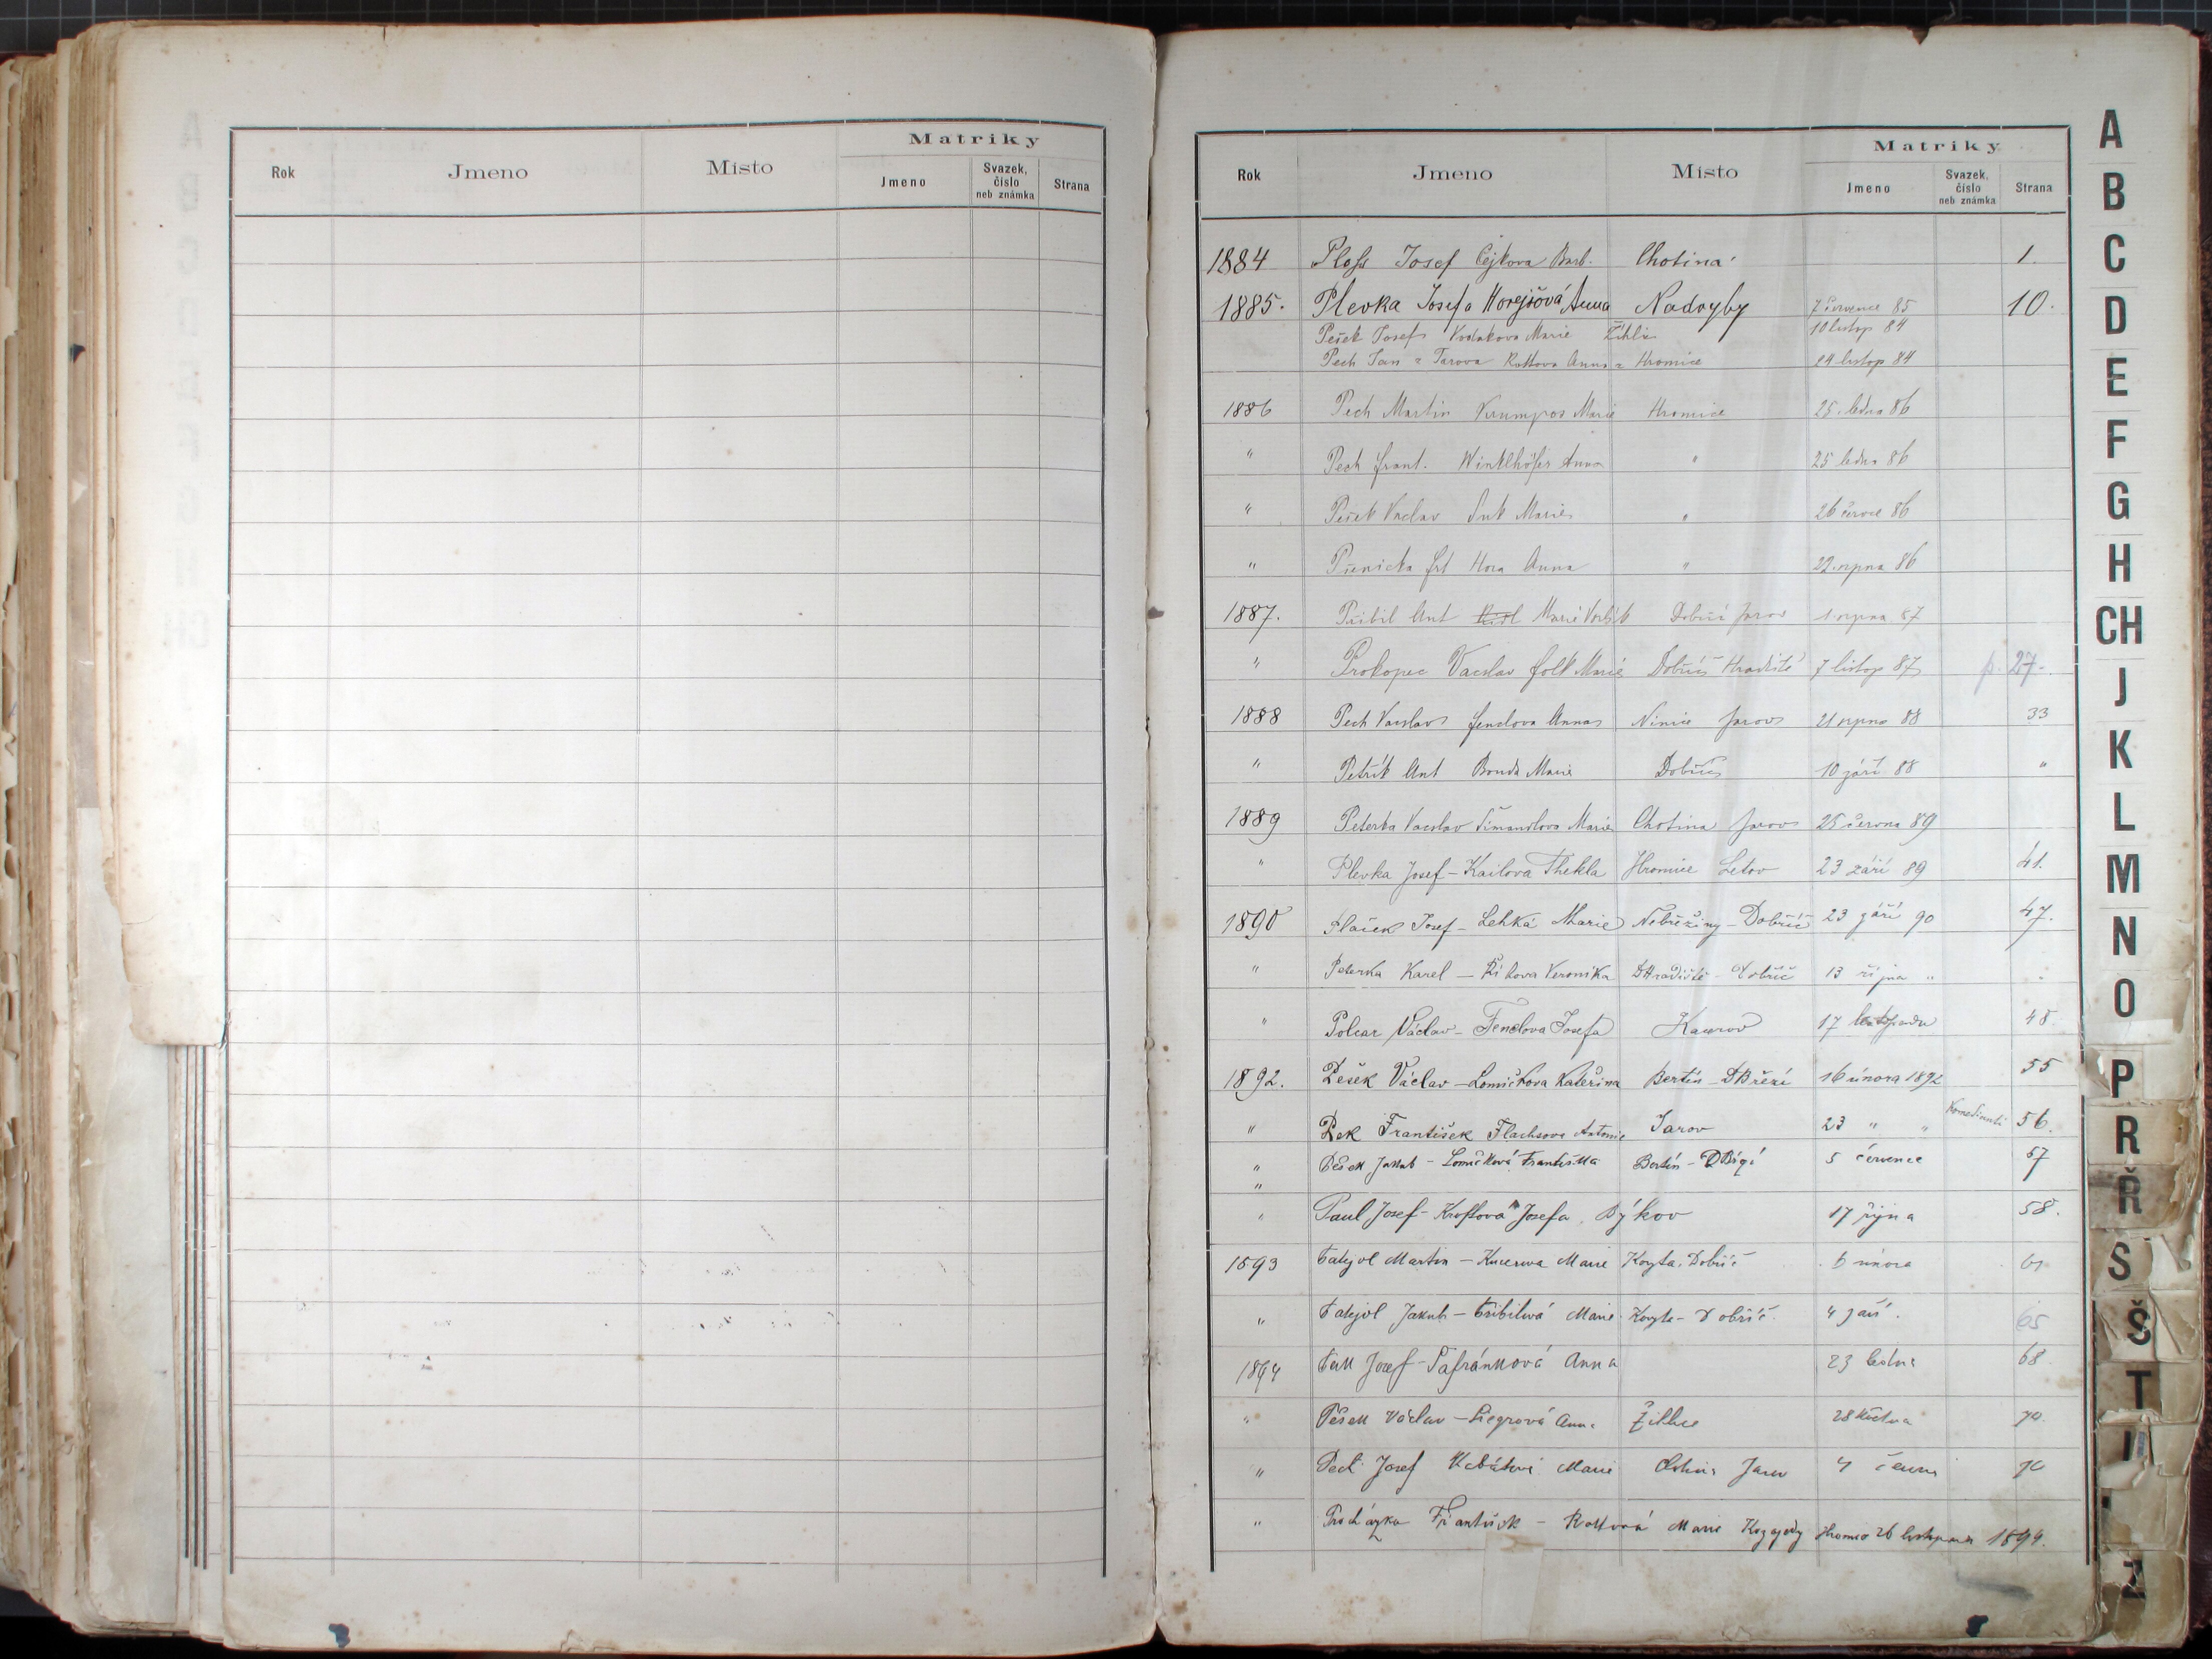 Matriky
Rok Jmeno Místo Jmeno Svazek, číslo neb známka Strana
Matriky
Rok Jmeno Místo Jmeno Svazek, číslo neb známka Strana
1884 Josef Cejkova Barb. Chotina 1.
1885. Plevka Josef a Horejšová Anna Nadryby 7 července 85 10.
Pešek Josef Vodakova Marie 10 listop 84
Pech Jan z Jarova Rottova Anna z Hromice 24 listop 84
1886 Pech Martin Krumpos Marie Hromice 25. ledna 86
" Pech Frant. Winklhöfer Anna " 25 ledna 86
" Pešek Vaclav Suk Marie " 26 červce 86
" Pšenicka Frt Hora Anna " 22. srpna 86
1887. Přibil Ant Marie Dobříč Jarov 1. srpna 87
" Prokopec Vacslav Folk Marie Dobříč Hradiště 7 listop 87 p. 27.
1888 Pech Vacslav Fenclova Anna Nimic Jarov 21 srpna 88 33
" Petřík Ant Bouda Marie Dobříč 10 září 88 "
1889 Peterka Vacslav Šimandlova Marie Chotina Jarov 25 června 89
" Plevka Josef - Kailova Thekla Hromice Letov 23 září 89 41.
1890 Plaček Josef - Lehká Marie Nebřeziny - Dobříč 23 září 90 47.
" Peterka Karel - Říhova Veronika DHradiště - Dobříč 13 října " "
" Polcar Václav - Fenclova Josefa Kacerov 17 listopadu 48
1892. Pešek Václav - Lomičkova Kateřina Bertín - DBřezí 16 února 1892 55
" Pek František Flachsova Antonie Jarov 23 " " 56.
" Pešek Jakub - Lomičková Františka Bertín - 5 července 57
"
" Paul Josef - Josefa Býkov 17 října 58.
1893 Martin - Kucerova Marie Koryta. Dobříč 6 února 61
" Jakub - Marie Koryta - Dobříč 4 září. 65
1894 Josef - Šafránková Anna 23 ledna 68
" Pešek Václav - Liegrová Anna Žilhce 28 května 70.
" Pech Josef Marie Jarov 4 června 70
" Procházka František - Rottová Marie Kozojedy Hromice 26 listopadu 1894.
A
B
C
D
E
F
G
H
CH
J
K
L
M
N
O
P
R
Ř
S
Š
T
Z